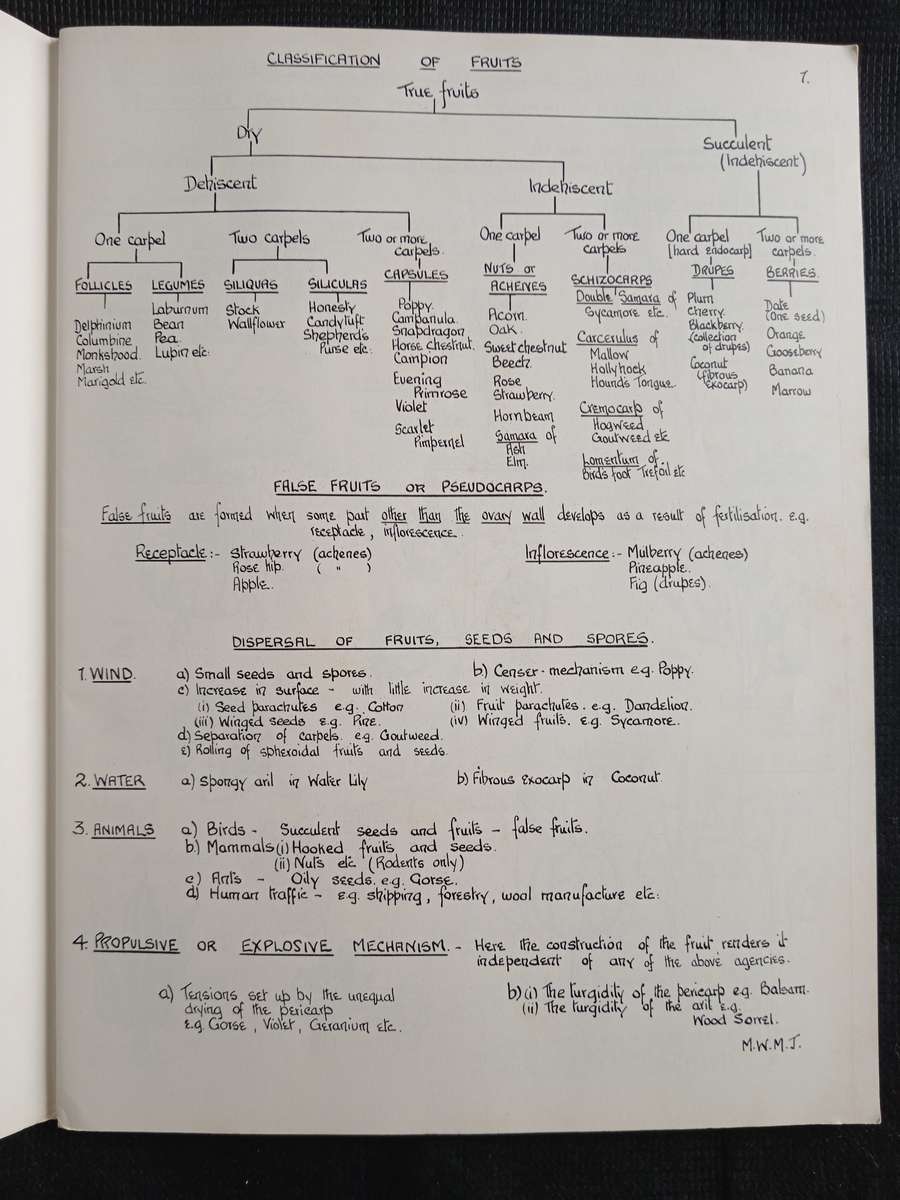 CLASSIFICATION OF FRUITS
1.
True fruits
Dry
Succulent
(Indehiscent)
Dehiscent
Indehiscent
One carpel
Two carpels
Two or more
carpels.
One carpel
Two or more
carpels
One carpel
[hard endocarp]
Two or more
carpels.
FOLLICLES
Delphinium
Columbine
Monkshood.
Marsh
Marigold etc.
LEGUMES
Laburnum
Bean
Pea
Lupin etc.
SILIQUAS
Stock
Wallflower
SILICULAS
Honesty
Candytuft
Shepherd's
Purse etc.
CAPSULES
Poppy.
Campanula.
Snapdragon
Horse Chestnut.
Campion
Evening
Primrose
Violet
Scarlet
Pimpernel
NUTS or
ACHENES
Acorn.
Oak.
Sweet chestnut
Beech.
Rose
Strawberry.
Hornbeam
Samara of
Ash
Elm.
SCHIZOCARPS
Double Samara of
Sycamore etc.
Carcerulus of
Mallow
Hollyhock
Hound's Tongue
Cremocarp of
Hogweed
Goutweed etc
Lomentum of.
Bird's foot Trefoil etc
DRUPES
Plum
Cherry.
Blackberry.
(collection
of drupes)
Coconut
(fibrous
exocarp)
BERRIES.
Date
(One seed)
Orange
Gooseberry
Banana
Marrow
FALSE FRUITS OR PSEUDOCARPS.
False fruits are formed when some part other than the ovary wall develops as a result of fertilisation. e.g.
receptacle, inflorescence.
Receptacle:- Strawberry (achenes)
Rose hip. ( " )
Apple.
Inflorescence:- Mulberry (achenes)
Pineapple.
Fig (drupes).
DISPERSAL OF FRUITS, SEEDS AND SPORES.
1. WIND. a) Small seeds and spores. b) Censer-mechanism e.g. Poppy.
c) Increase in surface - with little increase in weight.
(i) Seed parachutes e.g. Cotton (ii) Fruit parachutes. e.g. Dandelion.
(iii) Winged seeds e.g. Pine. (iv) Winged fruits. e.g. Sycamore.
d) Separation of carpels. e.g. Goutweed.
e) Rolling of spheroidal fruits and seeds.
2. WATER a) Spongy aril in Water Lily b) Fibrous exocarp in Coconut.
3. ANIMALS a) Birds - Succulent seeds and fruits - false fruits.
b) Mammals (i) Hooked fruits and seeds.
(ii) Nuts etc (Rodents only)
c) Ants - Oily seeds. e.g. Gorse.
d) Human traffic - e.g. shipping, forestry, wool manufacture etc.
4. PROPULSIVE OR EXPLOSIVE MECHANISM. - Here the construction of the fruit renders it
independent of any of the above agencies.
a) Tensions set up by the unequal
drying of the pericarp
e.g. Gorse, Violet, Geranium etc.
b) (i) The turgidity of the pericarp e.g. Balsam.
(ii) The turgidity of the aril e.g.
Wood Sorrel.
M.W.M.J.